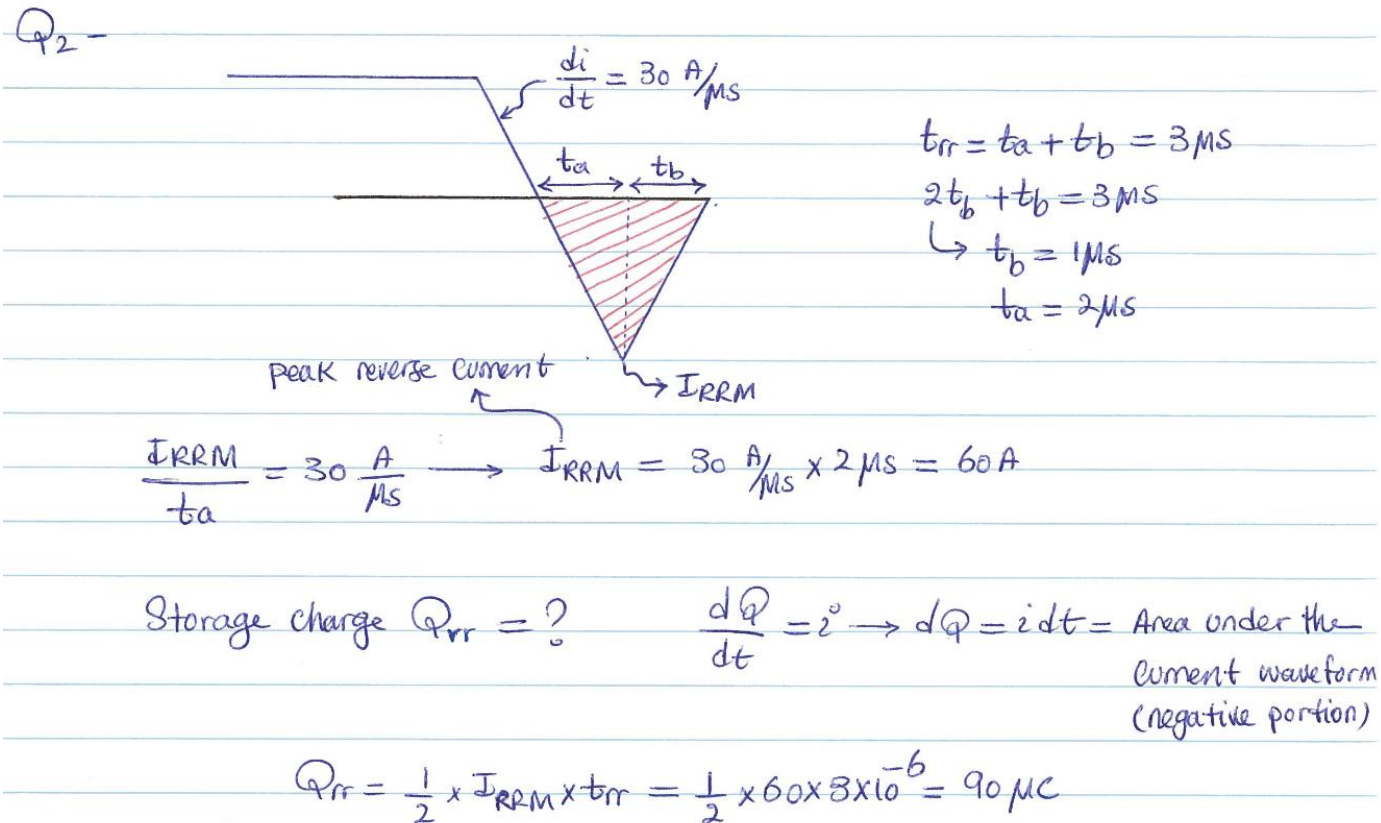 Q2 -
di/dt = 30 A/μs
ta tb
trr = ta + tb = 3 μs
2tb + tb = 3 μs
↳ tb = 1 μs
ta = 2 μs
peak reverse current
IRRM
IRRM/ta = 30 A/μs → IRRM = 30 A/μs x 2 μs = 60 A
Storage charge Qrr = ? dQ/dt = i → dQ = i dt = Area under the
current waveform
(negative portion)
Qrr = 1/2 x IRRM x trr = 1/2 x 60 x 3 x 10^-6 = 90 μC